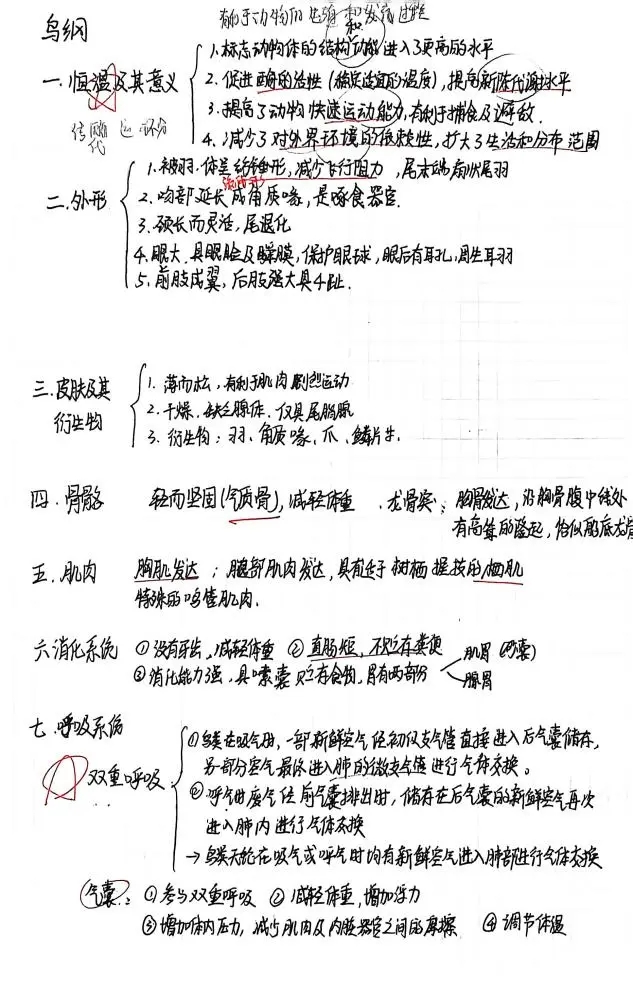 鸟纲
有助于动物的 和发育过程
一.恒温及其意义
1.标志动物体的结构功能进入了更高的水平
2.促进酶的活性(稳定适宜的温度),提高新陈代谢水平
3.提高了动物快速运动能力,有利于捕食及避敌.
4.减少了对外界环境的依赖性,扩大了生活和分布范围
代
二.外形
1.被羽.体呈纺锤形,减少飞行阻力,尾末端扇状尾羽
流线形
2.吻部延长成角质喙,是啄食器官.
3.颈长而灵活,尾退化
4.眼大.具眼睑及瞬膜,保护眼球,眼后有耳孔,周生耳羽
5.前肢成翼,后肢强大具4趾.
三.皮肤及其衍生物
1.薄而松,有利于肌肉剧烈运动
2.干燥.缺乏腺体.仅具尾脂腺
3.衍生物:羽.角质喙.爪.鳞片等.
四.骨骼 轻而坚固(气质骨),减轻体重 .龙骨突:胸骨发达,沿胸骨腹中线处
有高耸的隆起,恰似船底龙骨
五.肌肉 胸肌发达;腿部肌肉发达,具有适于树栖握枝的栖肌
特殊的鸣管肌肉.
六消化系统 ①没有牙齿,减轻体重 ②直肠短,不贮存粪便
③消化能力强,具嗉囊贮存食物,胃有两部分 肌胃(砂囊)
腺胃
七.呼吸系统
双重呼吸
①鸟类在吸气时,一部新鲜空气经初级支气管直接进入后气囊储存,
另一部分空气最终进入肺的微支气管进行气体交换。
②呼气时废气经前气囊排出时,储存在后气囊的新鲜空气再次
进入肺内进行气体交换
→鸟类无论在吸气或呼气时均有新鲜空气进入肺部进行气体交换
气囊: ①参与双重呼吸 ②减轻体重,增加浮力
③增加体内压力,减少肌肉及内脏器官之间的摩擦 ④调节体温